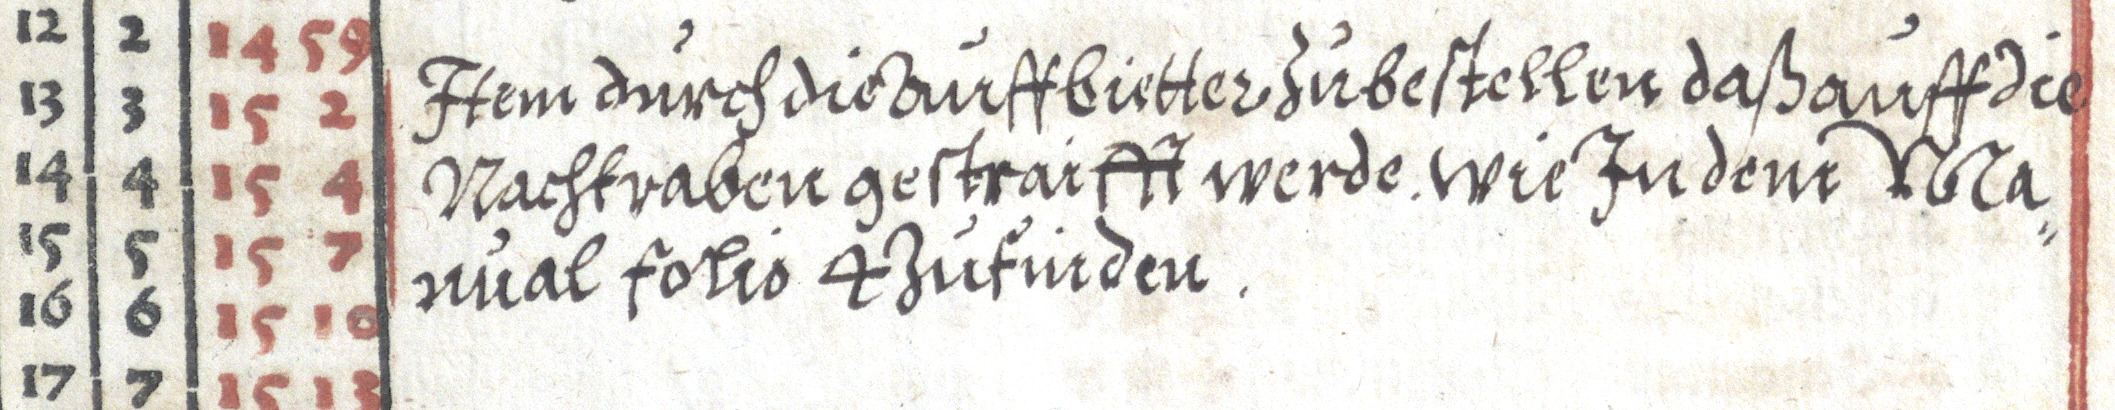 12 2 14 59
Item durch die auffbietter zu bestellen daß auff die
13 3 15 2
14 4 15 4
Nachtraben gestraifft werde. wie In dem Ma„
15 5 15 7
nual folio 4 zufinden.
16 6 15 10
17 7 15 13